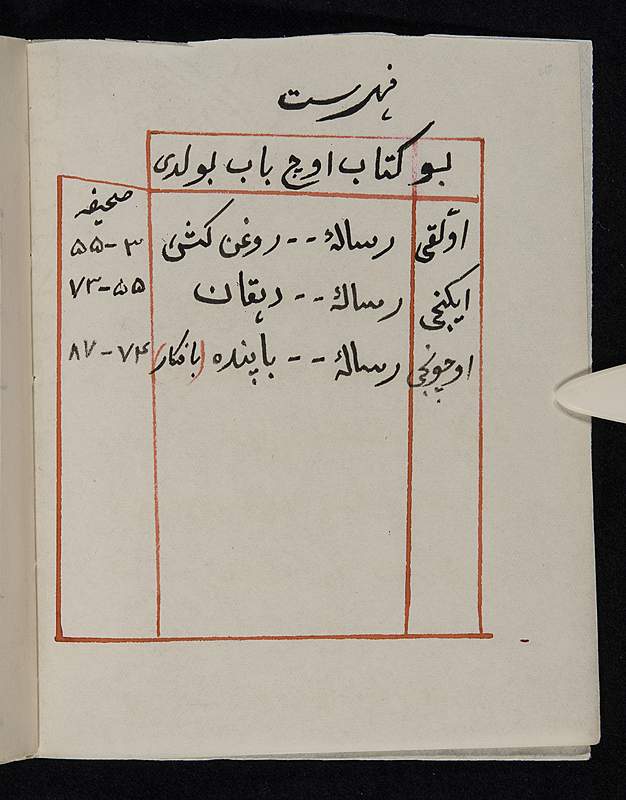 فهرست
بو کتاب اوچ باب بولدی
صحیفه
اوّلقی رسالهٔ -- روغن کش ۳-۵۵
ایکنجی رسالهٔ -- دهقان ۵۵-۷۳
اوچونجی رسالهٔ -- باپنده (بافکار) ۷۴-۸۷